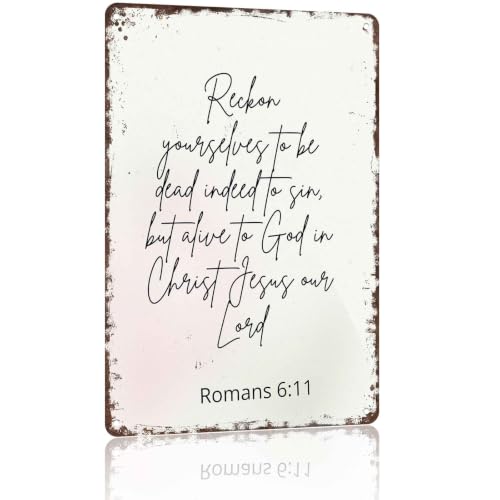 Reckon
yourselves to be
dead indeed to sin,
but alive to God in
Christ Jesus our
Lord
Romans 6:11
Romans 6:11